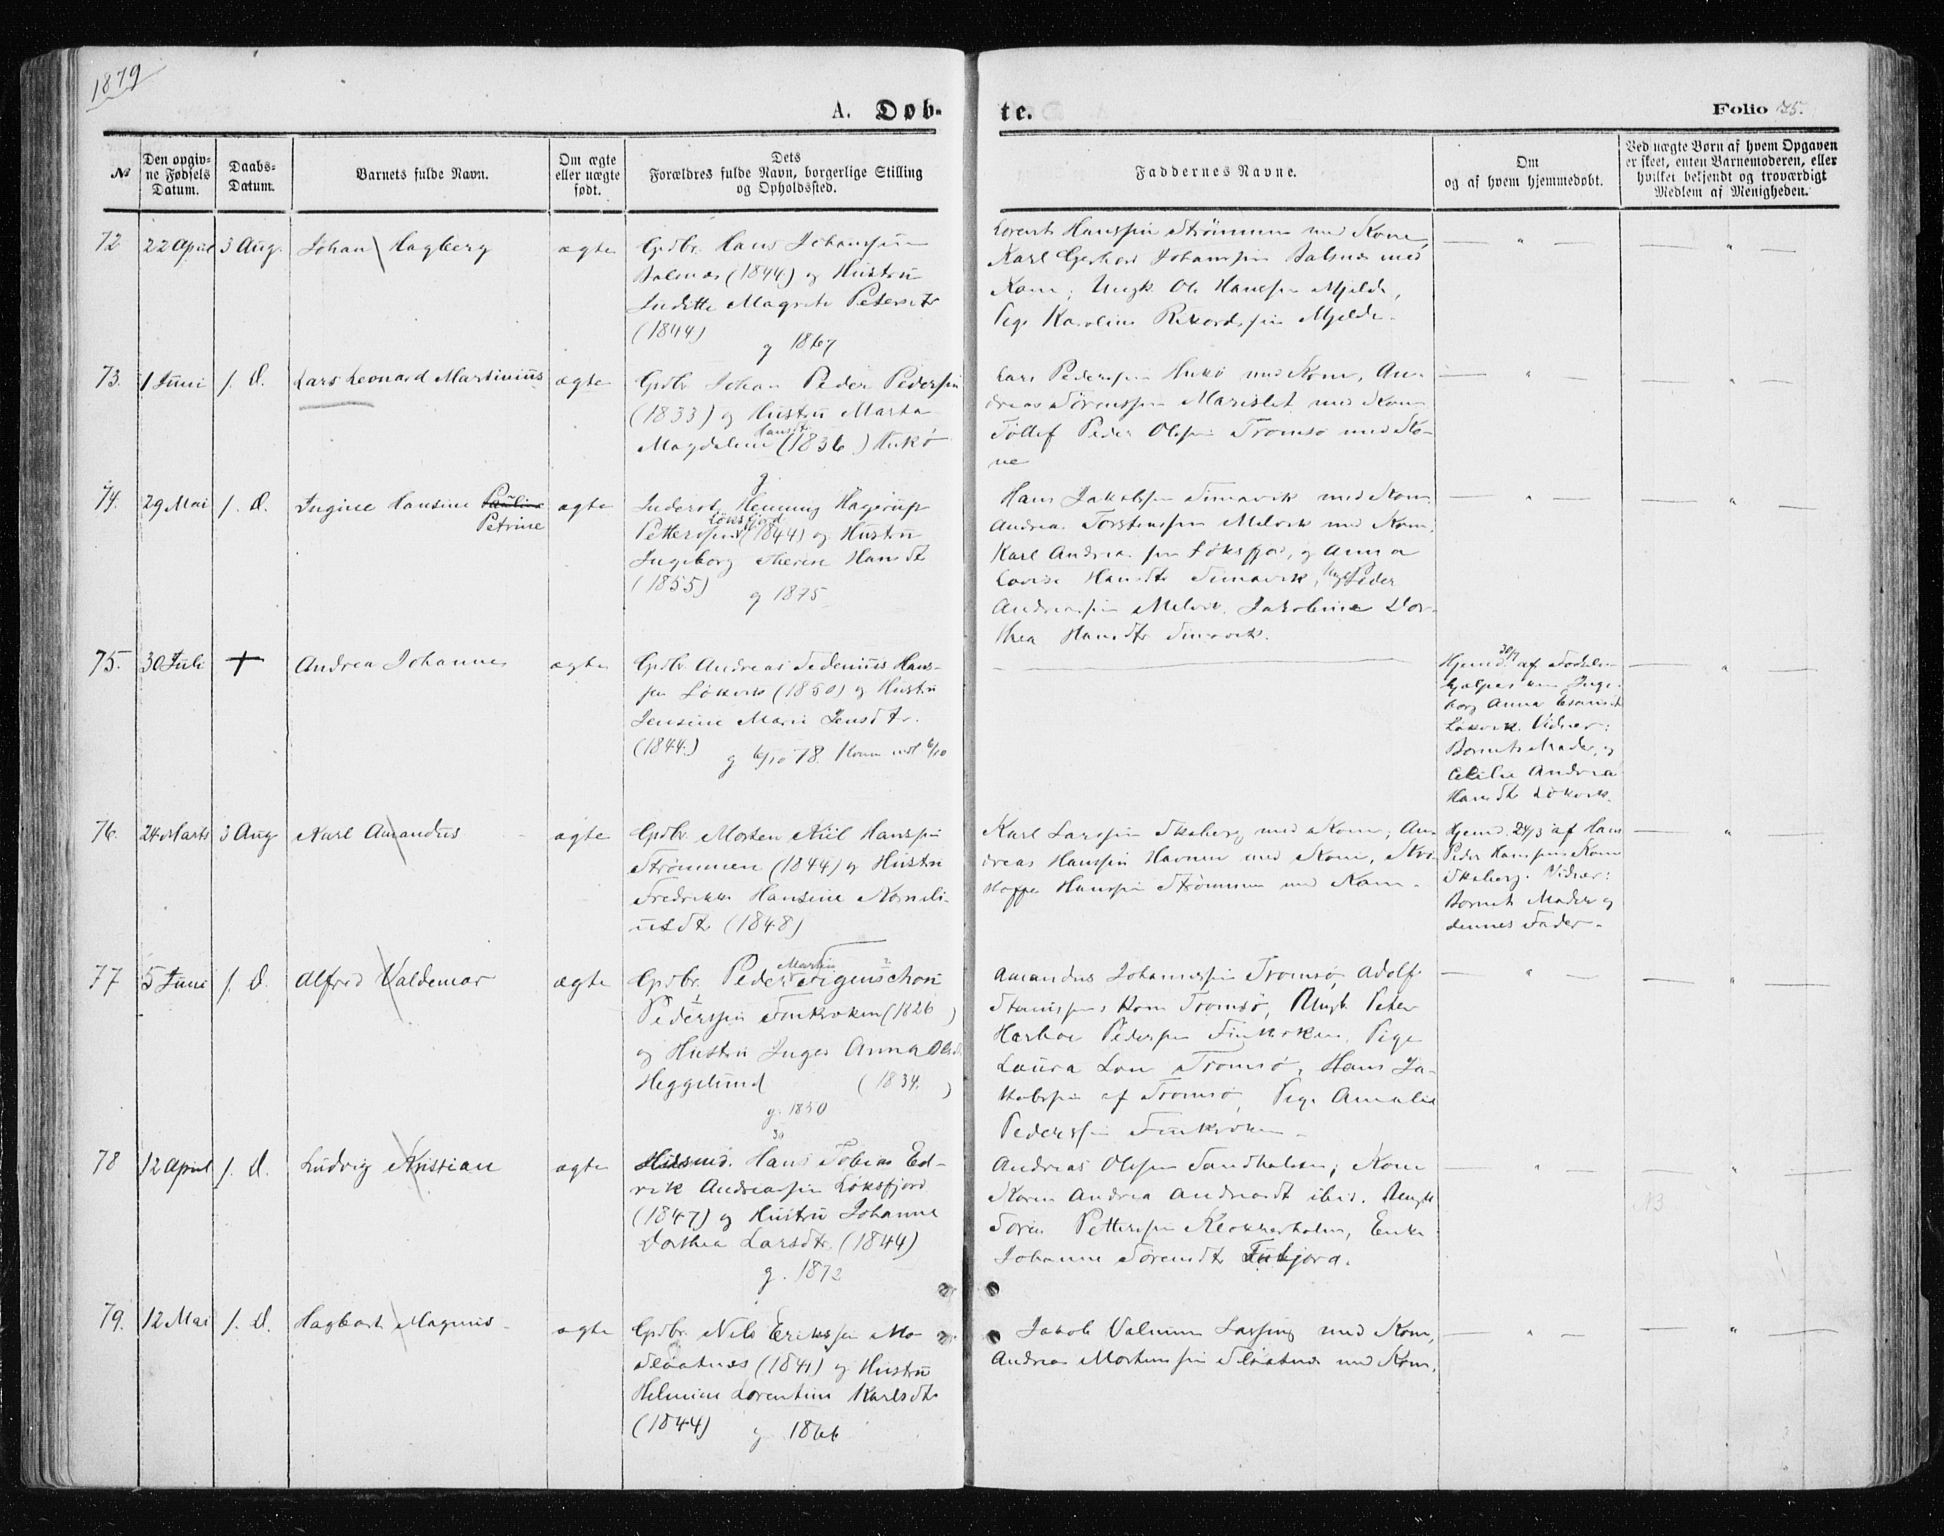 1879
A. Døb-
te.
Folio 75.
№
Den opgiv-
ne Fødsels
Datum.
Daabs-
Datum.
Barnets fulde Navn.
Om ægte
eller uægte
født.
Dets
Forældres fulde Navn, borgerlige Stilling
og Opholdssted.
Faddernes Navne.
Om
og af hvem hjemmedøbt.
Ved uægte Børn af hvem Opgaven
er skeet, enten Barnemoderen, eller
hvilket bekjendt og troværdigt
Medlem af Menigheden.
72
22 April
3 Aug.
Johan Hagberg
ægte
Gpdbr. Hans Johanssen
Balsnæs (1844) og Hustru
Juditte Magrete Petersdtr
(1844)
g 1867
Lorents Hanssen Strømmen med Kone,
Karl Gerhard Johanssen Balsnæs med
Kone; Ungk. Ole Hanssen Mjelde,
Pige Karoline Rikardssen Mjelde.
73.
1 Juni
s. D.
Lars Leonard Martinius
ægte
Gpdbr Johan Peder Pedersen
(1833) og Hustru Marta
Magdelena Hansdtr (1836) Kukø
g
Lars Pederssen Kukø med Kone, An-
dreas Sørenssen Marislet med Kone
Tollef Peder Olssen Tromsø med Ko-
ne
74.
29 Mai
s. D.
Ingine Hansine Pauline
Petrine
ægte
Inderst Henning Hagerup
Petterssen Løksfjord (1844) og Hustru
Ingeborg Therese Hansdtr
(1855)
g 1875
Hans Jakobssen Simavik med Kone
Andreas Torstenssen Melvik med Kone.
Karl Andreassen Løksfjor, og Anna
Lovise Hansdtr Simavik, Ungk Peder
Andreassen Melvik. Jakobine Dor-
thea Hansdtr Simavik.
75.
30 Juli
+
Andrea Johanne
ægte
Gpdbr. Andreas Sedenius Hans-
sen Løkvik (1850) og Hustru
Jensine Marie Jensdtr.
(1844)
g 6/10 78. Kone
Hjemd. 30/7 af Fødsels-
hjælperinde Inge-
borg Anna
Løkvik. Vidner:
Barnets Moder, og
Cecilie Andrea
Hansdtr Løkvik.
76.
24 Marts
3 Aug
Karl Amandus
ægte
Gpdbr. Morten Kiil Hanssen
Strømmen (1844) og Hustru
Fredrikke Hansine Korneli-
usdtr (1848)
Karl Larssen Skaberg med Kone; An-
dreas Hanssen Havnen med Kone, Kri-
stoffer Hanssen Strømmen med Kone.
Hjemd. 24/3 af Hans
Peder Hanssens Kone
Skaberg. Vidner:
Barnets Moder og
dennes Fader.
77
5 Juni
s. D.
Alfred Valdemar
ægte
Gpdbr. Peder Martin Figenschou
Pederssen Finkroken (1826)
og Hustru Inger Anna Olsdtr
Heggelund (1834.)
g. 1850
Amandus Johannessen Tromsø, Adolf
Kone Tromsø, Ungk Peter
Pederssen Finkroken, Pige
Laura Tromsø, Hans Ja-
kobssen af Tromsø, Pige Amalie
Pederssen Finkroken.
78
12 April
s. D.
Ludvig Kristian
ægte
Husmd. Hans Tobias Ed-
vik Andreassen Løksfjord
(1847) og Hustru Johanne
Dorthea Larsdtr (1844)
g. 1872
Andreas Olssen Sandhalsen, Kone
Karen Andrea Andreasdt ibid. Ungk
Sören Petterssen Klokkerholm, Enke
Johanne Sörensdtr
NB
79.
12 Mai
s. D.
Hagbart Magnus
ægte
Gpdbr. Nils Erikssen
Slaatnæs (1841) og Hustru
Helmine Lorentine Karlsdtr
(1844)
g 1866
Jakob med Kone,
Andreas Mortenssen Slaatnæs med Kone.